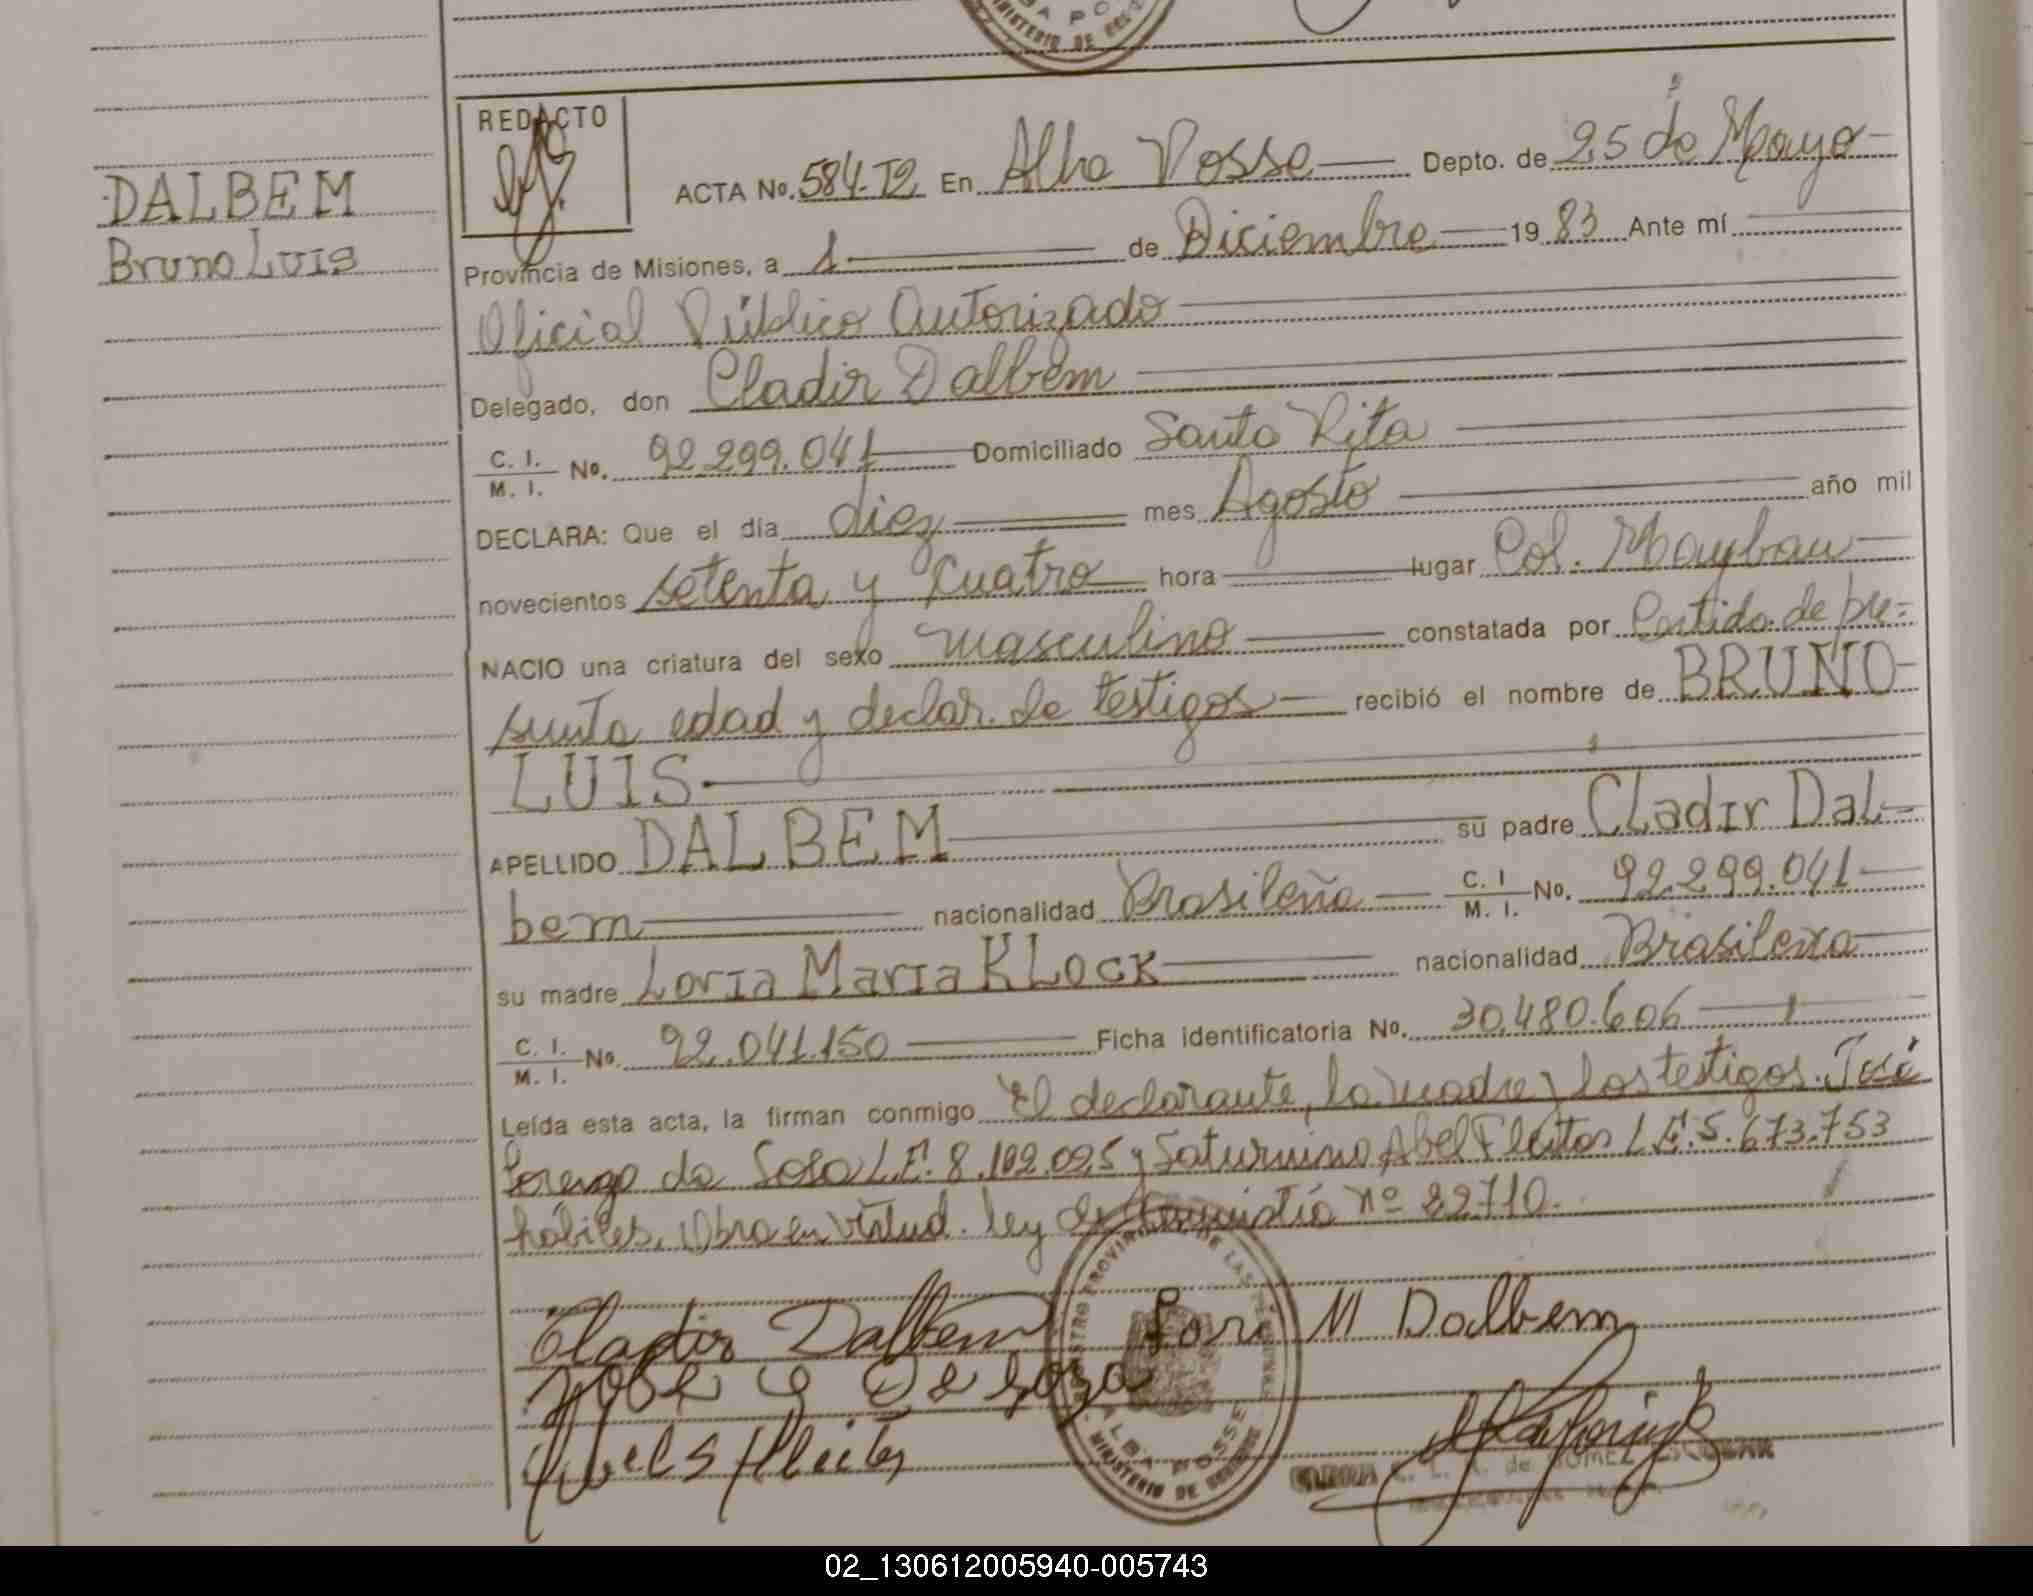 DALBEM
Bruno Luis
REDACTO
ACTA No. 584-T2 En Alba Posse Depto. de 25 de Mayo
Provincia de Misiones, a 1 de Diciembre 1983 Ante mí
Oficial Público Autorizado
Delegado, don Cladir Dalbem
C. I. M. I. No. 92.299.041 Domiciliado Santa Rita
DECLARA: Que el día diez mes Agosto año mil
novecientos setenta y cuatro hora lugar Col. Mayban
NACIO una criatura del sexo masculino constatada por Partida de pre=
sunta edad y declar. de testigos recibió el nombre de BRUNO
LUIS
APELLIDO DALBEM su padre Cladir Dal-
bem nacionalidad Brasileña C. I M. I. No. 92.299.041
su madre Loria Maria KLock nacionalidad Brasilena
C. I. M. I. No. 92.041.150 Ficha identificatoria No. 30.480.606
Leída esta acta, la firman conmigo El declarante, la madre y los testigos. José
Lorenzo da Sosa L.E. 8.102.025 y Saturnino Abel Fleitas L.E. 5.673.753
hábiles. Obra en virtud. ley de Amnistía nº 22710.
Cladir Dalbem Lori M Dalbem
José L Da Soza
Abel S Fleitas
ALBA POSSE
MINISTERIO DE
de GOMEZ ESCOBAR
02_130612005940-005743